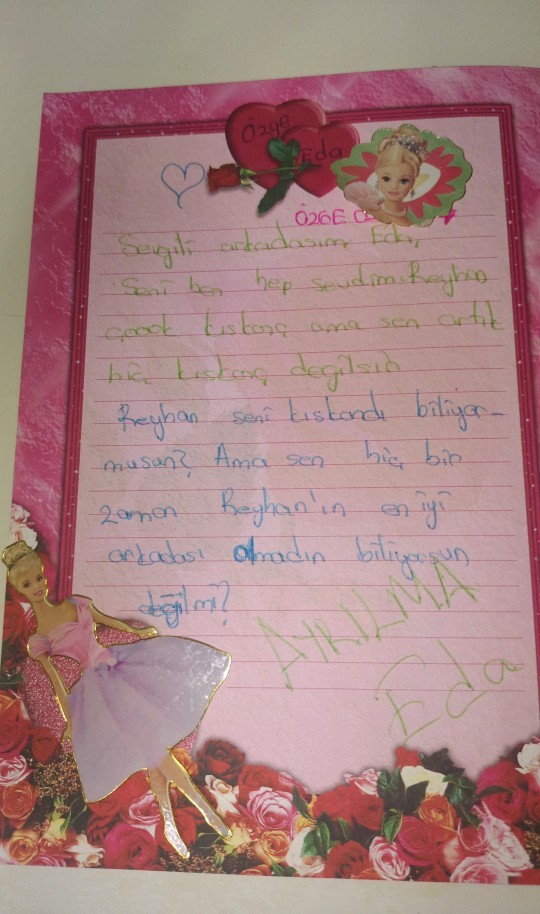 Özge
Eda
ÖZGE
Sevgili arkadasım Eda,
Seni ben hep sevdim. Reyhan
çoook kıskanç ama sen artık
hiç kıskanç değilsin
Reyhan seni kıskandı biliyor-
musun? Ama sen hiç bir
zaman Reyhan'ın en iyi
arkadası olmadın biliyorsun
değilmi?
AYRILMA
Eda